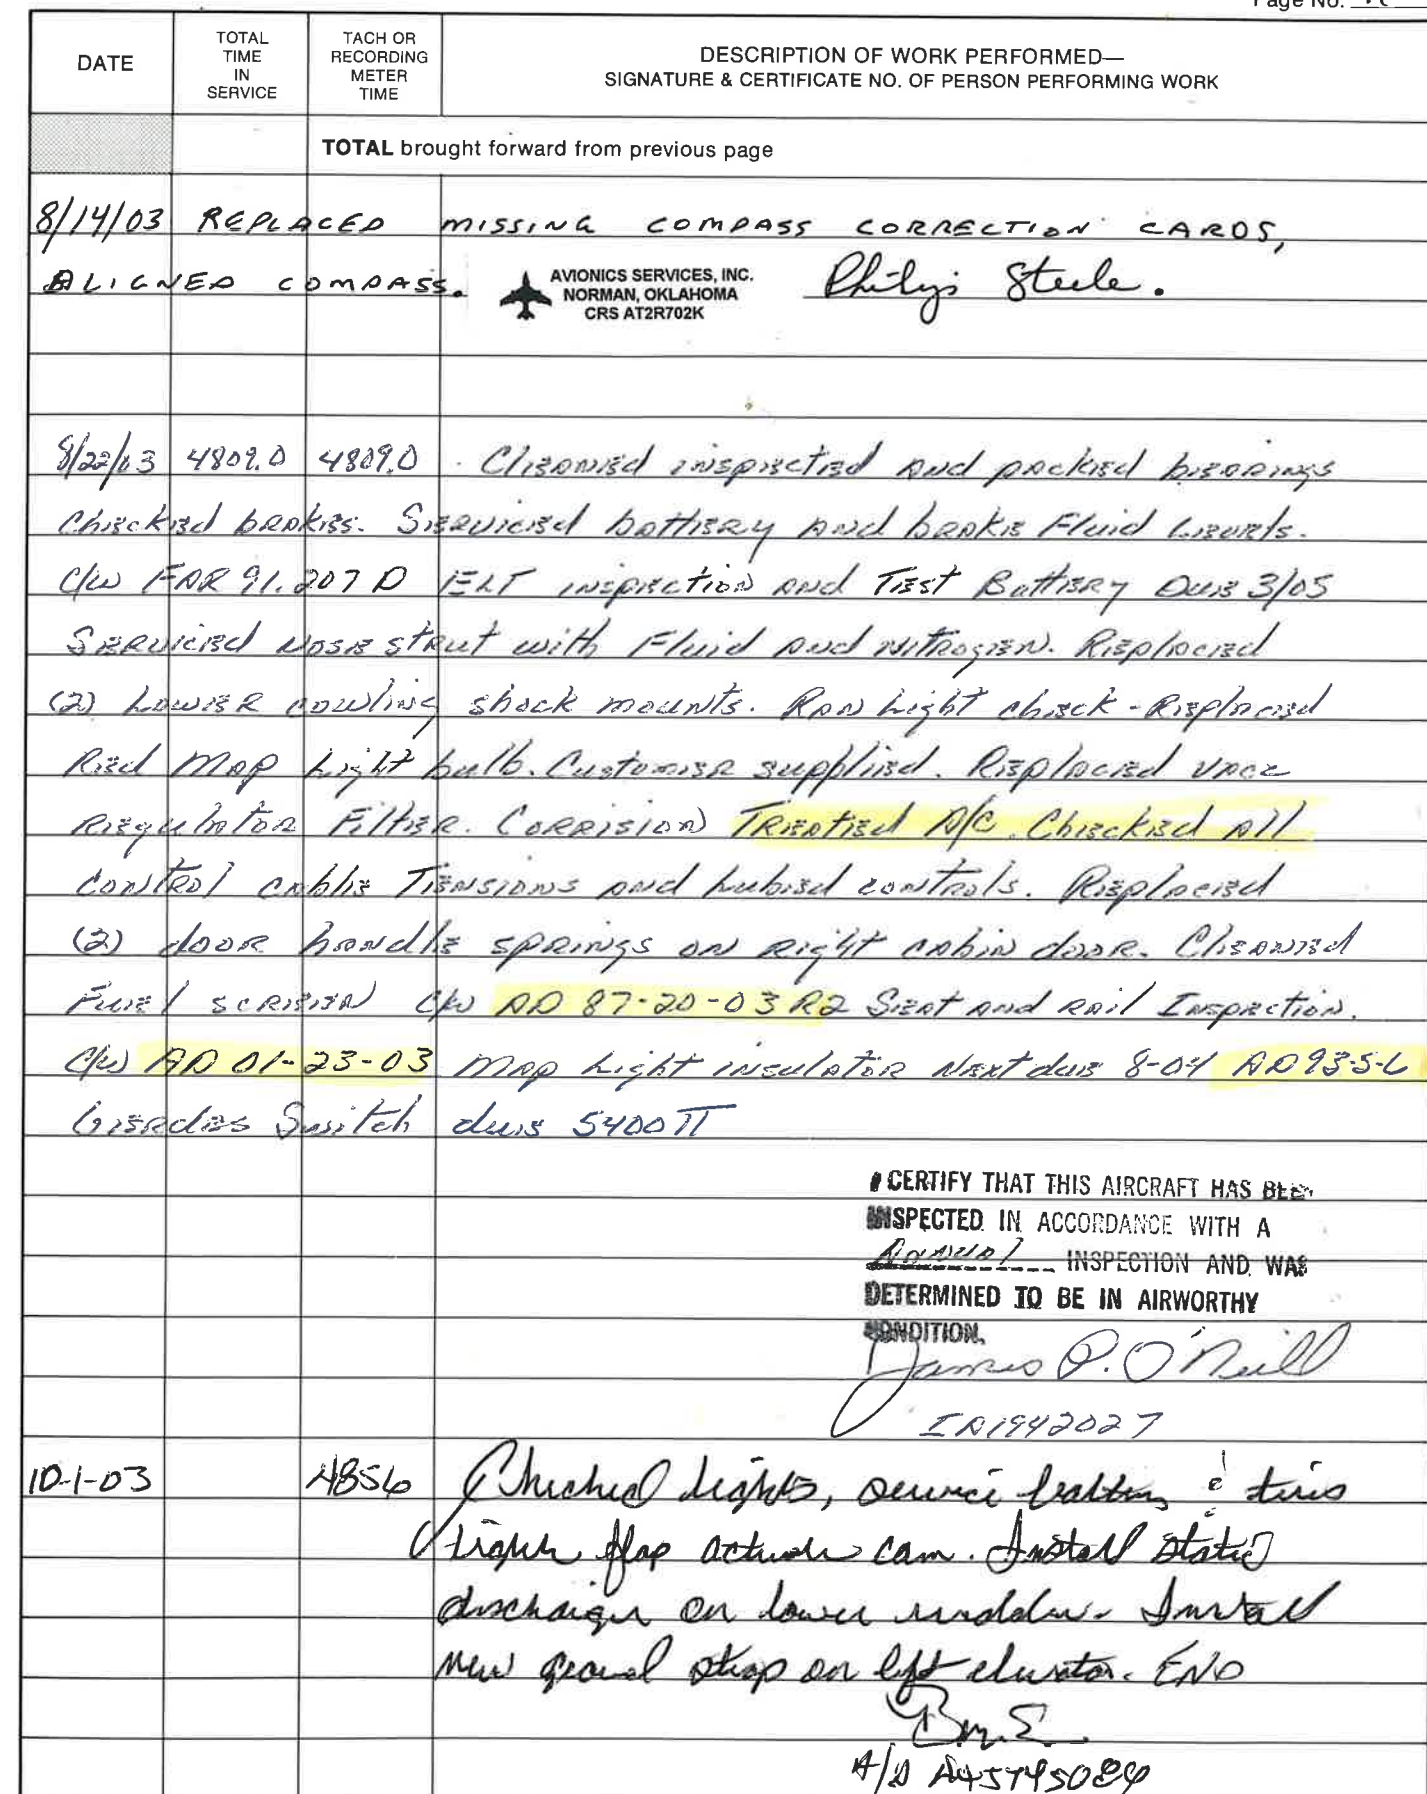 Page No.
DATE
TOTAL TIME IN SERVICE
TACH OR RECORDING METER TIME
DESCRIPTION OF WORK PERFORMED—
SIGNATURE & CERTIFICATE NO. OF PERSON PERFORMING WORK
TOTAL brought forward from previous page
8/14/03 REPLACED MISSING COMPASS CORRECTION CARDS,
ALIGNED COMPASS.
AVIONICS SERVICES, INC.
NORMAN, OKLAHOMA
CRS AT2R702K
Steele.
8/22/03 4809.0 4809.0 Cleaned inspected and packed bearings
Checked brakes. Serviced battery and brake Fluid Levels.
C/W FAR 91.207 D ELT inspection and Test Battery Due 3/05
Serviced nose strut with Fluid and nitrogen. Replaced
(2) Lower cowling shock mounts. Ran Light check - Replaced
Red Map Light bulb. Customer supplied. Replaced vacc
Regulator Filter. Corrision Treated A/C. Checked All
control cable Tensions and Lubed controls. Replaced
(2) door handle springs on right cabin door. Cleaned
Fuel screen C/W AD 87-20-03 R2 Seat and rail Inspection.
C/W AD 01-23-03 Map Light insulator Next due 8-04 AD 93-5-6
Gerdes Switch due 5400 TT
I CERTIFY THAT THIS AIRCRAFT HAS BEEN
INSPECTED IN ACCORDANCE WITH A
Annual INSPECTION AND WAS
DETERMINED TO BE IN AIRWORTHY
CONDITION.
James P. O'Neill
IA1942027
10-1-03 4856 Checked lights, service battery & tires
tighten flap actuator cam. Install static
discharger on lower rudder. Install
new ground strap on left elevator. END